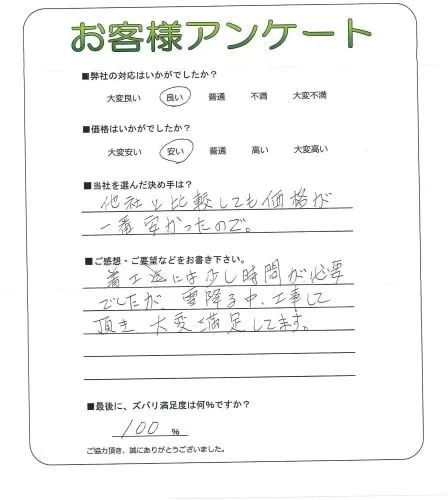 お客様アンケート
■弊社の対応はいかがでしたか？
大変良い 良い 普通 不満 大変不満
■価格はいかがでしたか？
大変安い 安い 普通 高い 大変高い
■当社を選んだ決め手は？
他社と比較しても価格が
一番安かったので。
■ご感想・ご要望などをお書き下さい。
着工迄には少し時間が必要
でしたが、雪降る中、工事して
頂き 大変満足してます。
■最後に、ズバリ満足度は何%ですか？
100 %
ご協力頂き、誠にありがとうございました。